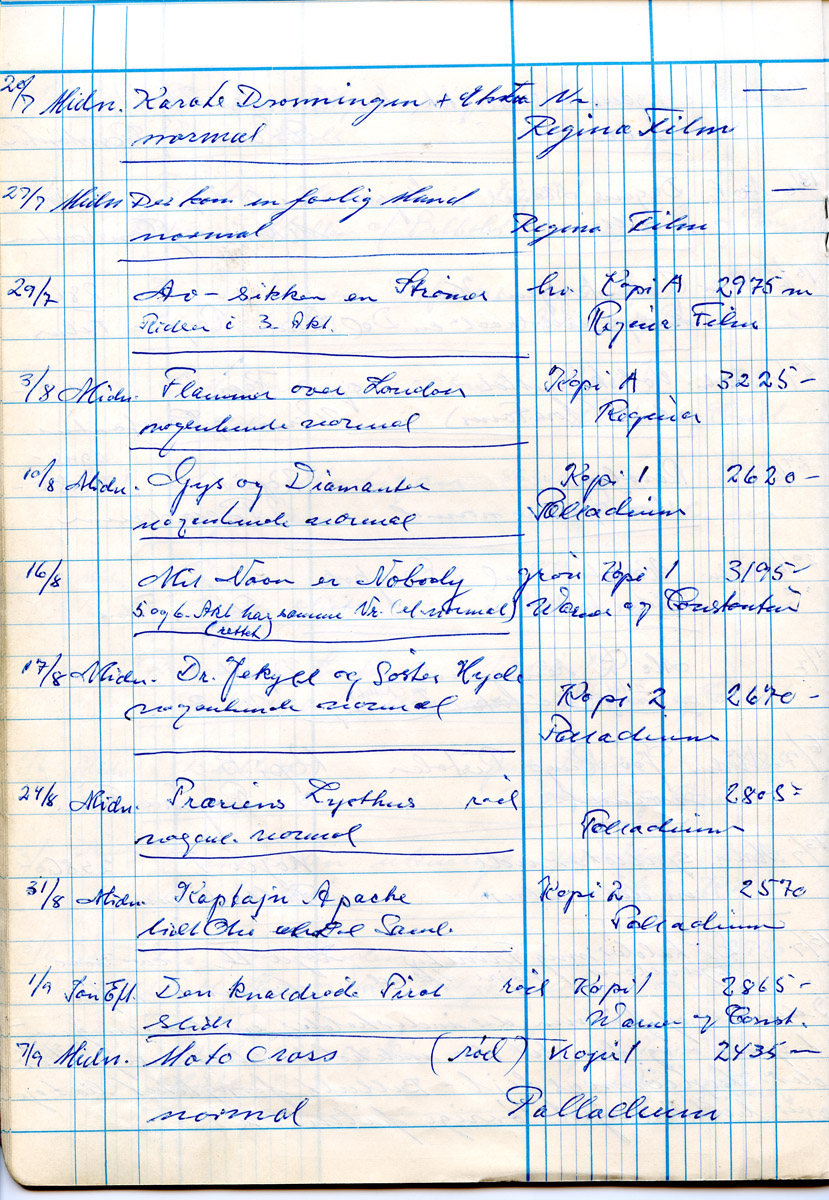 20/7 Midn. Karate Dronningen + Nr.
normal Regina Film
27/7 Midn Der kom en farlig Mand
normal Regina Film
29/7 Av - sikken en Strømer Kopi A 2975 m
i 3. Akt. Regina Film
3/8 Midn. Flammer over London Kopi A 3225 -
nogenlunde normal Regina
10/8 Midn. Gys og Diamanter Kopi 1 2620 -
nogenlunde normal Palladium
16/8 Mit Navn er Nobody grøn Kopi 1 3195 -
5. og 6. Akt har samme Nr. (el. normal) Warner og Constantin
(rettet)
17/8 Midn. Dr. Jekyll og Søster Hyde
nogenlunde normal Kopi 2 2670 -
Palladium
24/8 Midn. Præriens Lysthus rød 2805 -
nogenl. normal Palladium
31/8 Midn. Kaptajn Apache Kopi 2 2570
lidt Olie Saml. Palladium
1/9 Søn Eft. Den knaldrøde Pirat rød Kopi 1 2865 -
slidt Warner og Const.
7/9 Midn. Moto Cross (rød) Kopi 1 2435 -
normal Palladium